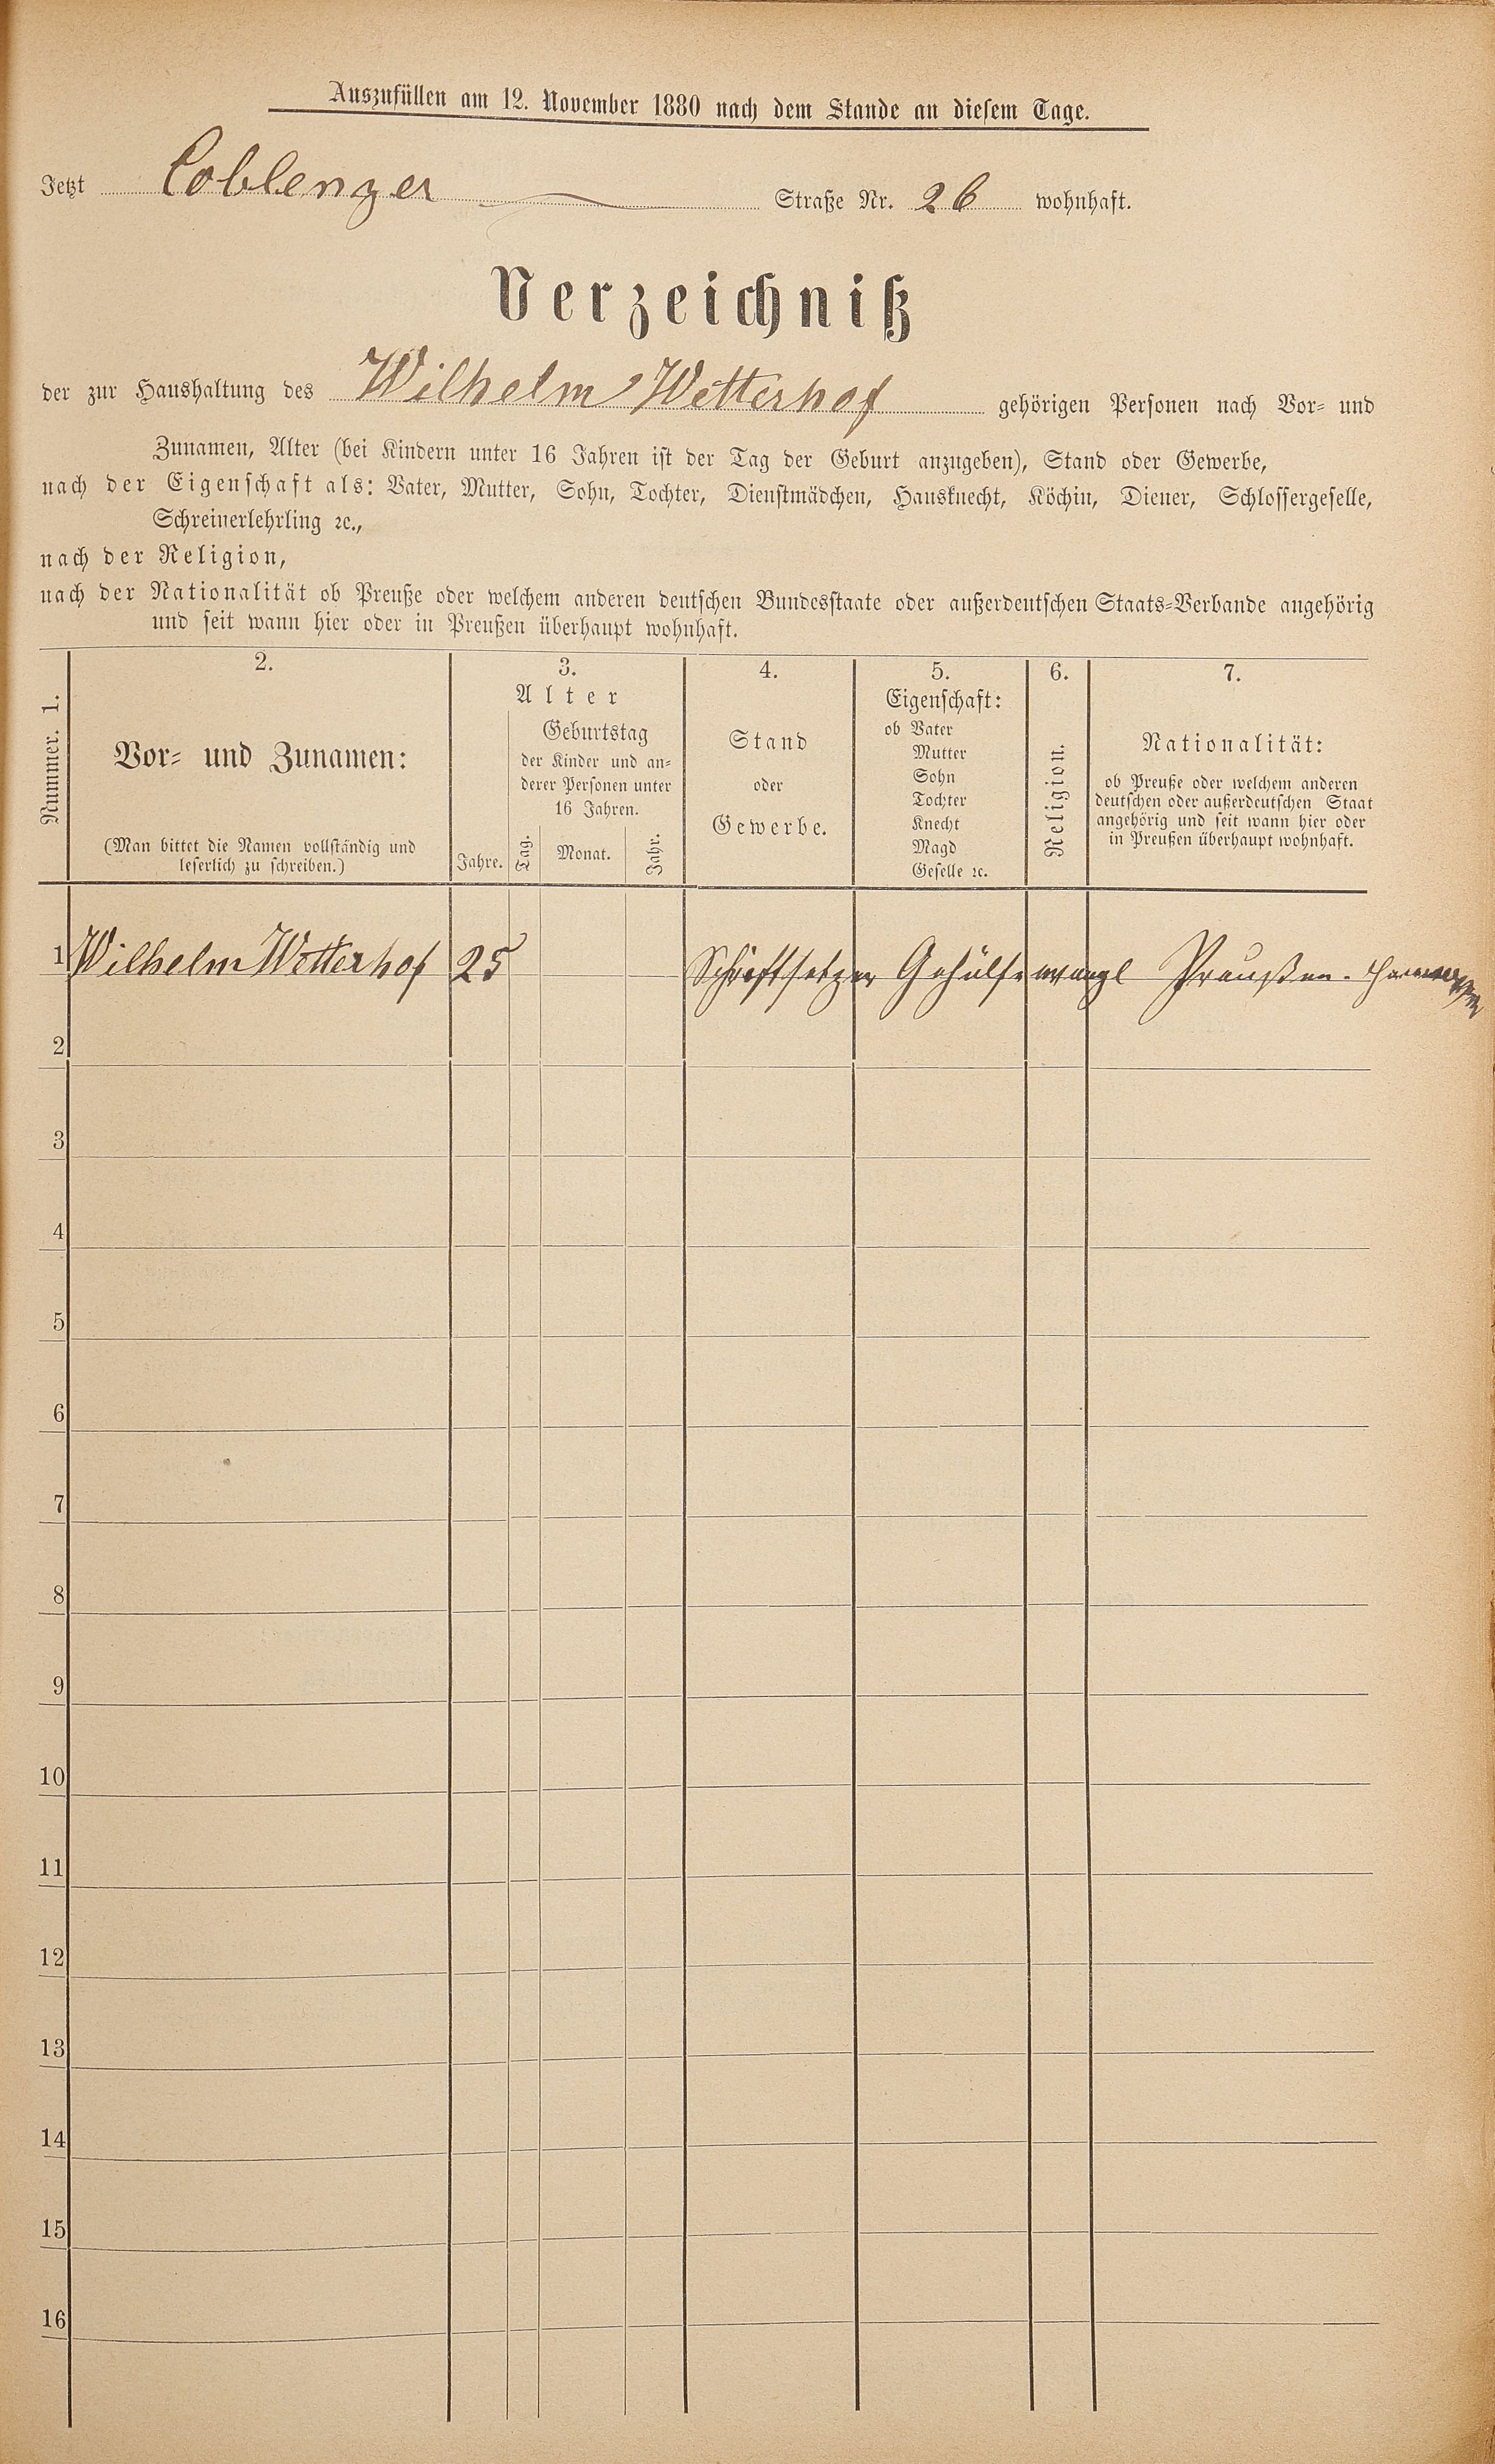 Auszufüllen am 12. November 1880 nach dem Stande an diesem Tage.
Jetzt Coblenzer Straße Nr. 26 wohnhaft.
Verzeichniß
der zur Haushaltung des Wilhelm Wetterhof gehörigen Personen nach Vor- und
Zunamen, Alter (bei Kindern unter 16 Jahren ist der Tag der Geburt anzugeben), Stand oder Gewerbe,
nach der Eigenschaft als: Vater, Mutter, Sohn, Tochter, Dienstmädchen, Hausknecht, Köchin, Diener, Schlossergeselle,
Schreinerlehrling ꝛc.,
nach der Religion,
nach der Nationalität ob Preuße oder welchem anderen deutschen Bundesstaate oder außerdeutschen Staats-Verbande angehörig
und seit wann hier oder in Preußen überhaupt wohnhaft.
Nummer. 1.
2.
Vor- und Zunamen:
(Man bittet die Namen vollständig und
leserlich zu schreiben.)
3.
Alter
Jahre.
Geburtstag
der Kinder und an-
derer Personen unter
16 Jahren.
Tag. Monat. Jahr.
4.
Stand
oder
Gewerbe.
5.
Eigenschaft:
ob Vater
Mutter
Sohn
Tochter
Knecht
Magd
Geselle ꝛc.
6.
Religion.
7.
Nationalität:
ob Preuße oder welchem anderen
deutschen oder außerdeutschen Staat
angehörig und seit wann hier oder
in Preußen überhaupt wohnhaft.
1 Wilhelm Wetterhof 25 Schriftsetzer Gehülfe evangl Preußen.
2
3
4
5
6
7
8
9
10
11
12
13
14
15
16